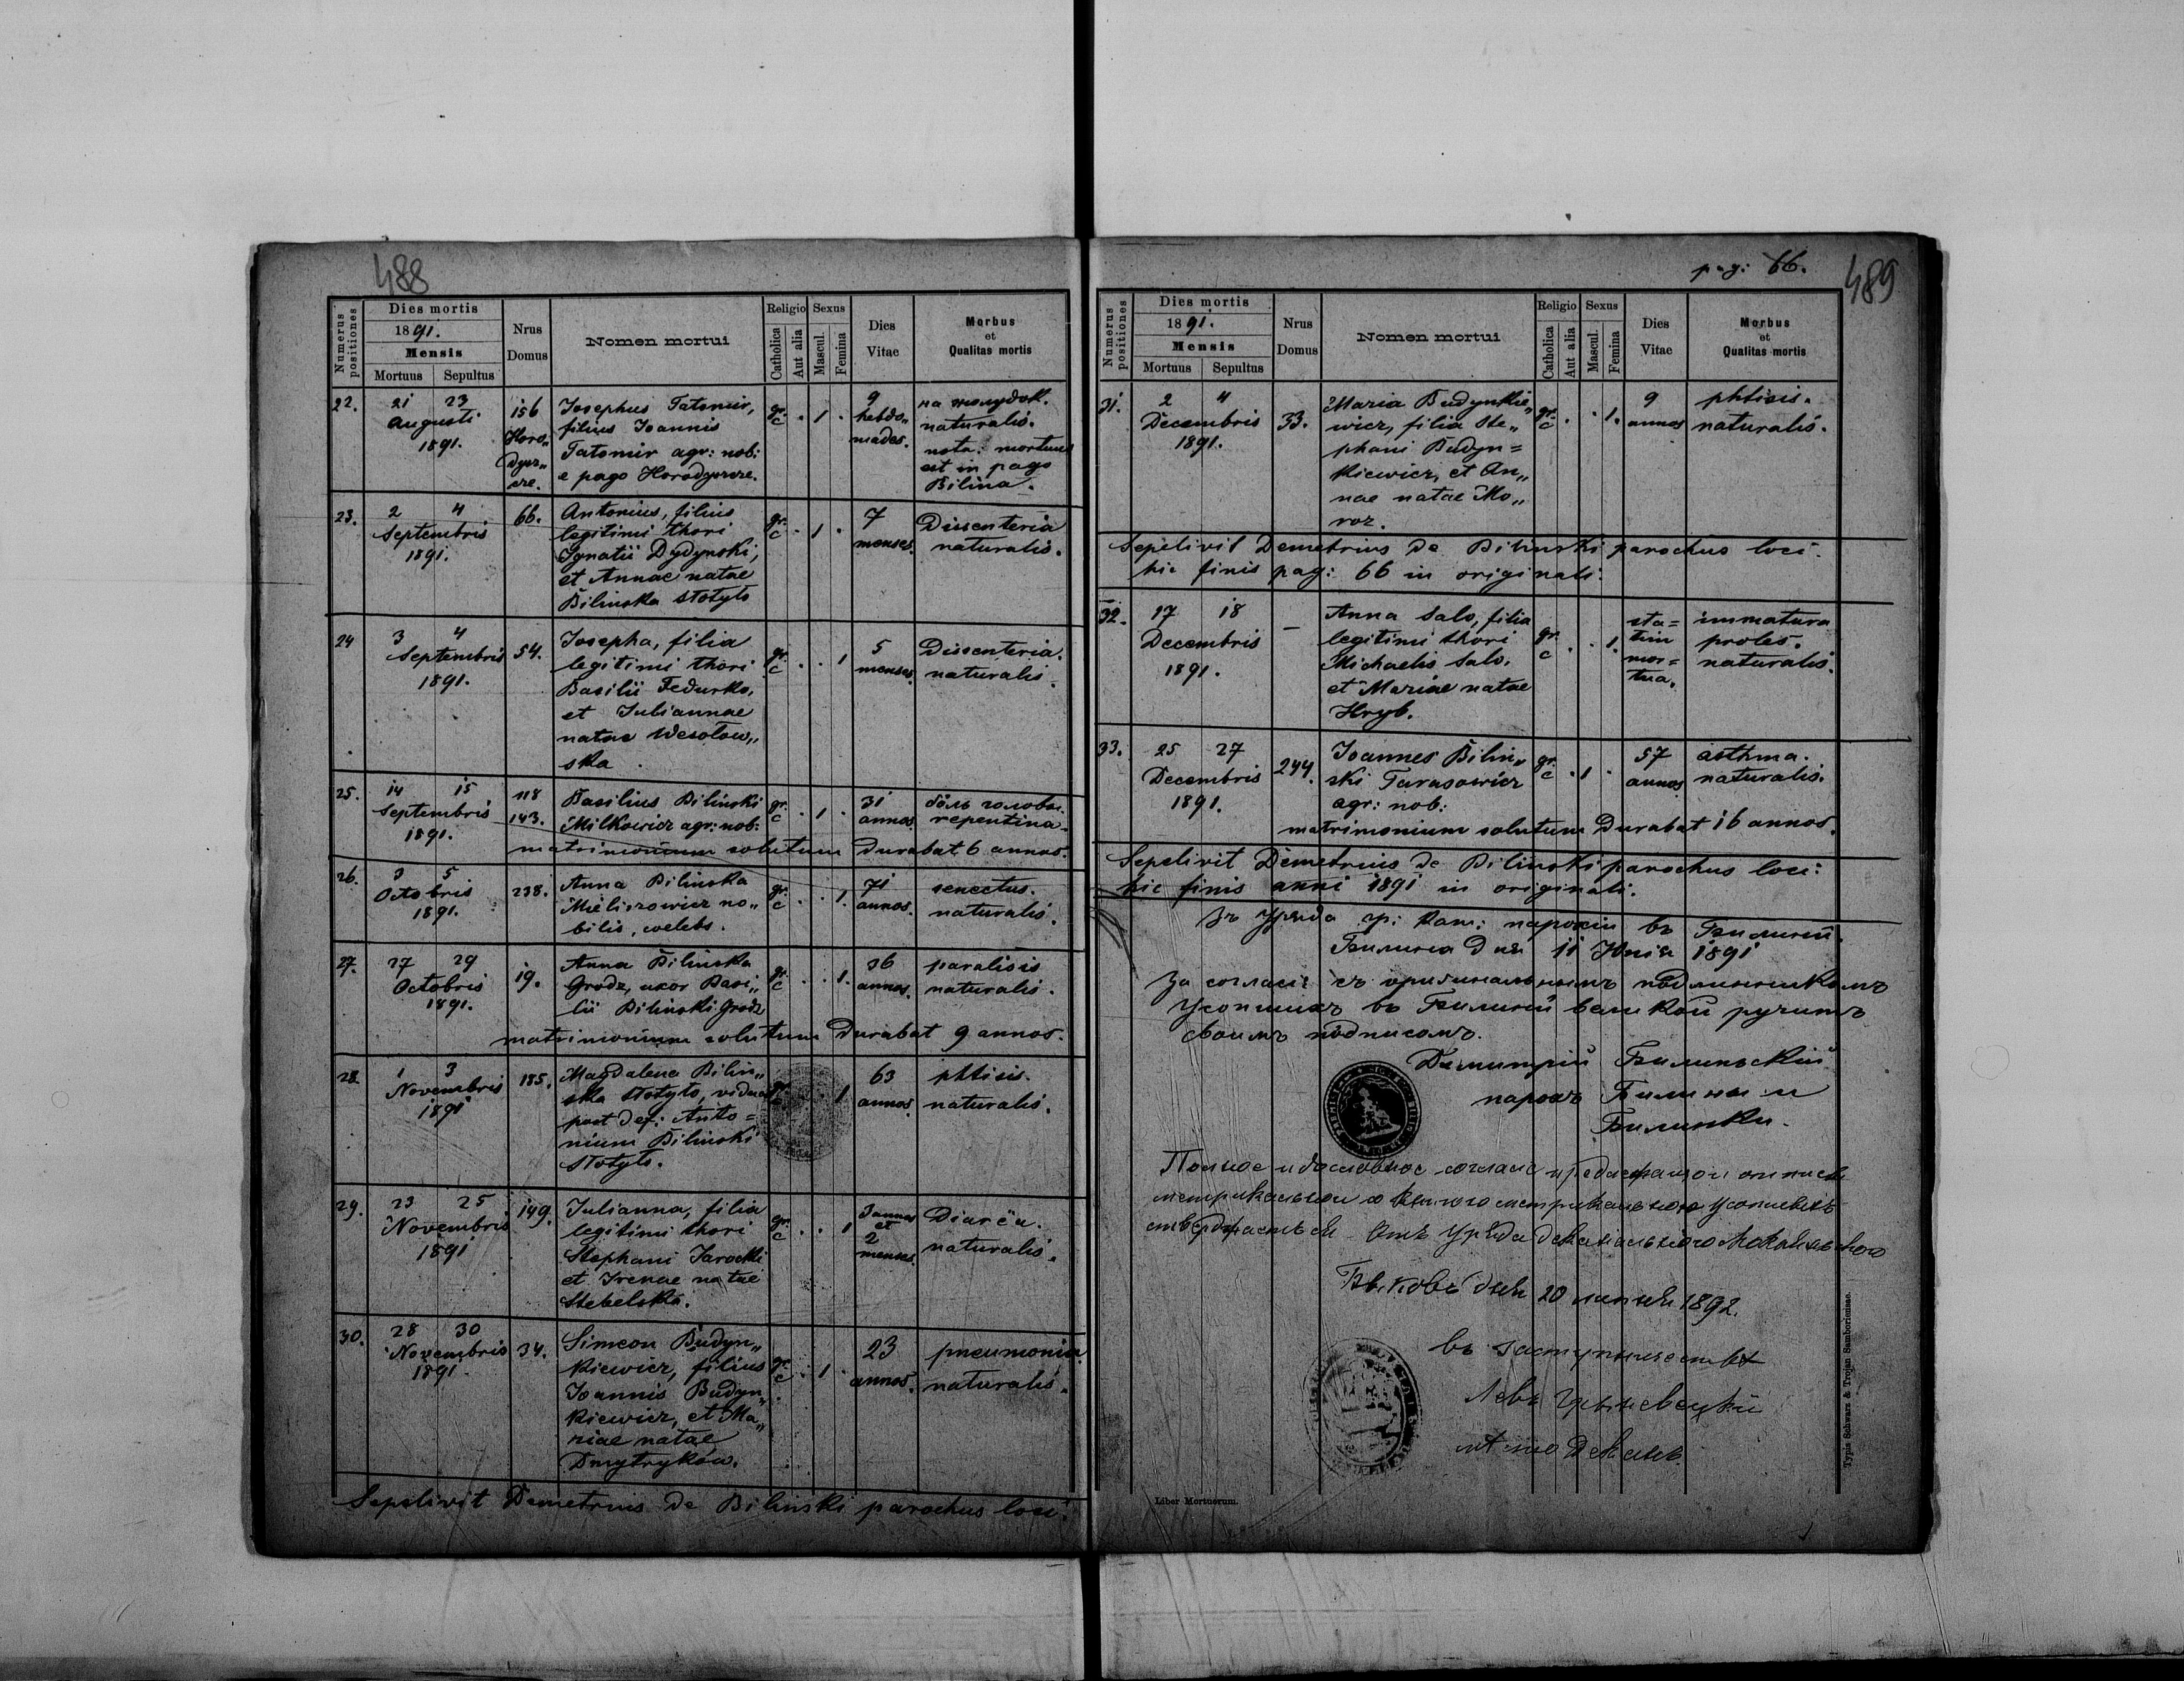 488
Numerus positiones
Dies mortis
1891.
Mensis
Mortuus Sepultus
Nrus Domus
Nomen mortui
Religio
Catholica
Aut alia
Sexus
Mascul.
Femina
Dies Vitae
Morbus
et
Qualitas mortis
22. 21 23 156 Josephus Tatomir, gr. c . 1 . 9 на жолудок.
Augusti Horo„ filius Joannis hebdo„ naturalis.
1891. dysz„ Tatomir agr: nob: mades. nota: mortuus
cze. e pago Horodyszcze. est in pago
Bilina.
23. 2 4 66. Antonius, filius gr. c . 1 . 7 Dissenteria
Septembris legitimi thori menses. naturalis.
1891. Ignatii Dydynski,
et Annae natae
Bilinska Stotyło
24 3 4 54. Josepha, filia gr. c . . 1 5 Dissenteria.
Septembris legitimi thori menses. naturalis.
1891. Basilii Fedurko,
et Juliannae
natae Wesołow„
ska
25. 14 15 118 Basilius Bilinski gr. c . 1 . 31 боль головы.
Septembris 143. Milkowicz agr: nob: annos. repentina.
1891. matrimonium solutum durabat 6 annos.
26. 3 5 238. Anna Bilinska gr. c . . 1. 71 senectus.
Octobris Mieliszowicz no„ annos. naturalis.
1891. bilis, coelebs.
27. 27 29 19. Anna Bilinska gr. c . . 1. 36 paralisis
Octobris Grodz, uxor Basi„ annos. naturalis.
1891. lii Bilinski Grodz
matrimonium solutum durabat 9 annos.
28. 1 3 185. Magdalena Bilin„ 1 63 phtisis.
Novembris ska Stotyło, vidua annos. naturalis.
1891 post def: Anto=
nium Bilinski
Stotyło.
29. 23 25 149. Julianna, filia gr. c . . 1 3 annos Diarëa.
Novembris legitimi thori et naturalis.
1891 Stephani Jarocki 2
et Irenae natae menses.
Stebelska.
30. 28 30 34. Simeon Budyn„ gr. c . 1 . 23 pneumonia
Novembris kiewicz, filius annos. naturalis.
1891. Joannis Budyn„
kiewicz, et Ma„
riae natae
Dmytryków.
Sepelivit Demetrius de Bilinski parochus loci.
pag: 66.
489
Numerus positiones
Dies mortis
1891.
Mensis
Mortuus Sepultus
Nrus Domus
Nomen mortui
Religio
Catholica
Aut alia
Sexus
Mascul.
Femina
Dies Vitae
Morbus
et
Qualitas mortis
31. 2 4 33. Maria Budynkie„ gr. c . . 1. 9 phtisis.
Decembris wicz, filia Ste„ annos naturalis.
1891. phani Budyn=
kiewicz, et An„
nae natae Mo„
roz.
Sepelivit Demetrius de Bilinski parochus loci.
hic finis pag: 66 in originali.
32. 17 18 — Anna Salo, filia gr. c . . 1. sta= immatura
Decembris legitimi thori tim proles.
1891. Michaelis Salo, mor= naturalis.
et Mariae natae tua.
Hryb.
33. 25 27 244. Joannes Bilin„ gr. c . 1 . 57 asthma.
Decembris ski Tarasowicz annos naturalis.
1891. agr: nob:
matrimonium solutum durabat 16 annos.
Sepelivit Demetrius de Bilinski parochus loci:
hic finis anni 1891 in originali.
Зъ Уряда гр: кат: парохіи въ Билинѣ.
Билина дня 11 Юнія 1891
За согласіе съ оригинальнымъ
Усопшихъ въ Билинѣ великой ручитъ
своимъ подписомъ.
Димитрій Билиньскій
парохъ Билины и
Билинки.
Полное и дословное согласіе
Усопшихъ
Отъ Уряда деканального
дня 20 1892.
въ заступничествѣ
Левъ
Liber Mortuorum.
Typis Schwarz & Trojan Samboriensae.